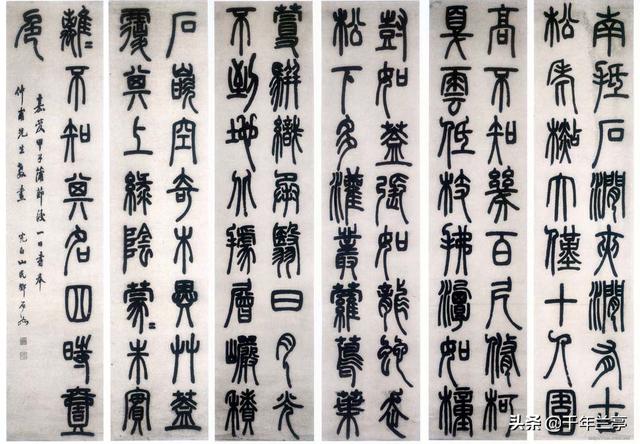 南抵石澗夾澗有古
松老樧大僅十人圍
高不知幾百尺脩柯
戛雲低枝拂潭如幢
豎如蓋張如龍蛇走
松下多灌叢蘿蔦葉
蔓駢織承翳日月光
不到地據層巖積
石嵌空奇木異艸蓋
覆其上綠陰蒙=朱實
離=不知其名四時壹
色
嘉慶甲子蒲節後一日書奉
仲甫先生教
完白山民鄧石如
头条 @千年兰亭